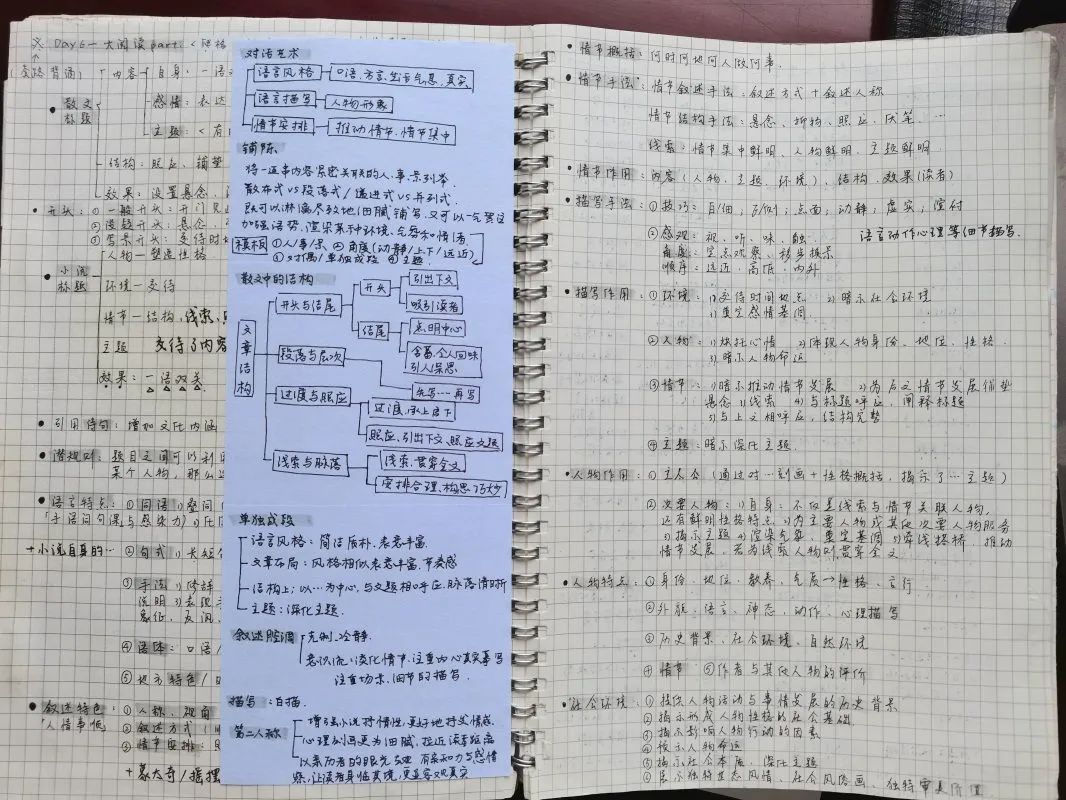 Day6 一 大阅读 part.
(全路背诵) 内容 自身：一语
散文
标题
感情：表达
主题：<有
结构：照应、铺垫
效果：设置悬念、
开头：① 一般开头：开门见
② 悬疑开头：悬念、
③ 写景开头：交待时
人物—塑造性格
小说
标题
环境一交待
情节一结构、线索、
主题 交待了内容
效果：一语双关
引用诗句：增加文化内涵
潜规则、题目之间可以利
某个人物，那么
语言特点：① 词语 1)叠词
+小说自身的… ② 句式 1)长短
③ 手法 1)修辞
象征、反讽、
④ 语体：口语
⑤ 地方特色
叙述特色：① 人称、视角
人情事低 ② 叙述方式
③ 情节安排：
对话艺术
语言风格 口语、方言、生活气息、真实
语言描写 人物形象
情节安排 推动情节、情节集中
铺陈
将一连串内容紧密关联的人、事、景列举
散布式vs段落式/递进式vs并列式.
既可以淋漓尽致地细腻铺写，又可以一气贯注
加强语势，渲染某种环境、气氛和情绪
模板 ①人/事/景 ②角度(动静/上下/远近)
③对偶/单独成段 ④主题
散文中的结构
文章结构
开头与结尾 开头 引出下文
吸引读者
结尾 点明中心
含蓄、令人回味
引人深思
段落与层次 先写…再写
过渡与照应 过渡、承上启下
照应、引出下文、照应文题
线索与脉络 线索、贯穿全文
安排合理、构思巧妙
单独成段
语言风格：简洁质朴、表意丰富.
文章布局：风格相似表意丰富，节奏感
结构上：以…为中心，与文题相呼应，脉络清晰
主题：深化主题.
叙述腔调 克制、冷静.
意识流：淡化情节、注重内心真实摹写
注重场景、细节的描写.
描写：白描
第二人称 增强小说抒情性，更好地抒发情感.
心理刻画更为细腻，拉近读者距离
以亲历者的眼光叙述 有亲和力与感情
让读者身临其境，更显客观真实
情节概括：何时何地何人做何事.
情节手法：情节叙述手法：叙述方式+叙述人称
情节结构手法：悬念、抑扬、照应、伏笔、…
线索：情节集中鲜明、人物鲜明、主题鲜明.
情节作用：内容(人物、主题、环境)、结构、效果(读者)
描写手法：①技巧：白细；正侧；点面；动静；虚实；渲衬
②感观：视、听、味、触… 语言动作心理等细节描写.
角度：定点观察、移步换景
顺序：远近、高低、内外
描写作用：①环境：1)交待时间地点 2)暗示社会环境
3)奠定感情基调
②人物：1)烘托心情 2)体现人物身份、地位、性格
3)暗示人物命运
③情节：1)暗示推动情节发展 2)为后文情节发展铺垫
悬念 3)线索 4)与标题呼应，阐释标题
5)与上文相呼应，结构完整
④主题：暗示深化主题.
人物作用：①主人公(通过对…刻画+性格概括，揭示了…主题)
②次要人物：1)自身：不仅是线索与情节关联人物，
还有鲜明性格特点 2)为主要人物或其他次要人物服务
3)揭示主题 4)渲染气氛、奠定基调 5)牵线搭桥，推动
情节发展，若为线索人物则贯穿全文
人物特点：①身份、地位、教养、气质→性格、言行
②外貌、语言、神态、动作、心理描写
③历史背景、社会环境、自然环境
④情节 ⑤作者与其他人物的评价
社会环境：①提供人物活动与事情发展的历史背景
②揭示形成人物性格的社会基础
③揭示影响人物行动的因素
④暗示人物命运
⑤揭示社会本质，深化主题
⑥展示独特世态风情、社会风俗画、独特审美价值